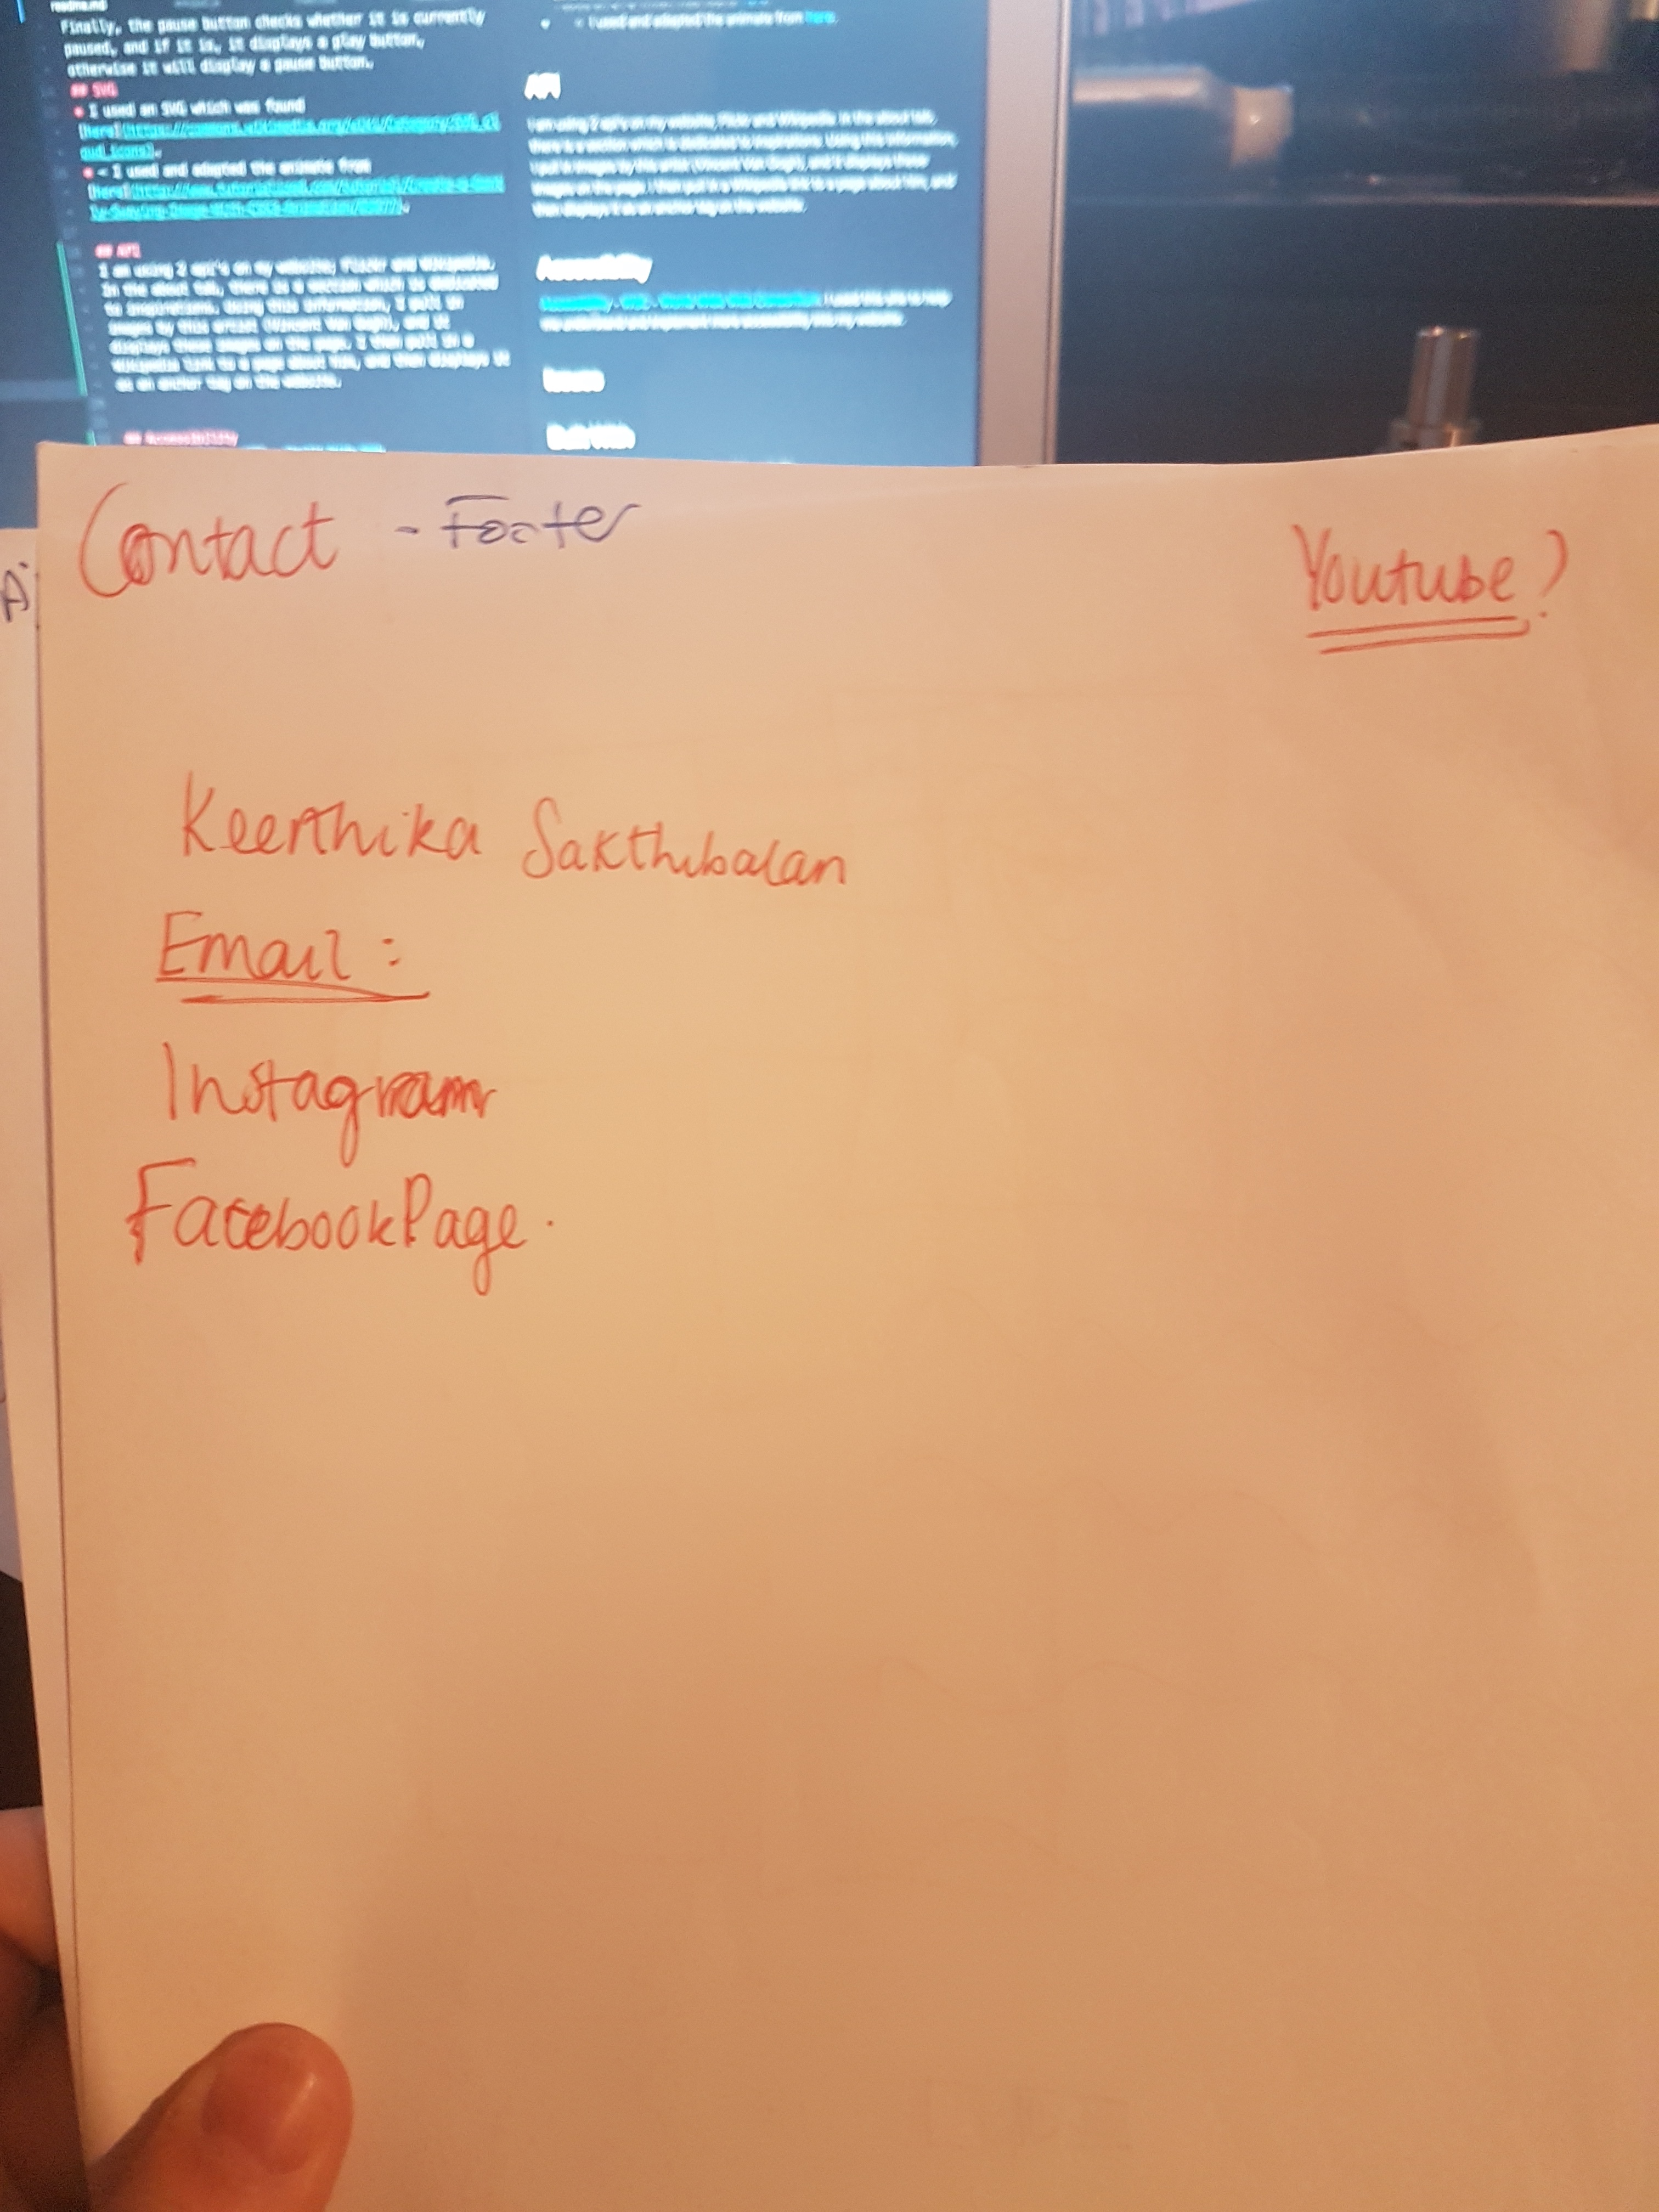 readme.md
Finally, the pause button checks whether it is currently
paused, and if it is, it displays a play button,
otherwise it will display a pause button.
## SVG
I used an SVG which was found
- I used and adapted the animate from
## API
I am using 2 api's on my website; Flickr and Wikipedia.
In the about tab, there is a section which is dedicated
to inspirations. Using this information, I pull in
images by this artist (Vincent Van Gogh), and it
displays these images on the page. I then pull in a
Wikipedia link to a page about him, and then displays it
as an anchor tag on the website.
## Accessibility
I used and adapted the animate from here.
API
I am using 2 api's on my website; Flickr and Wikipedia. In the about tab,
there is a section which is dedicated to inspirations. Using this information,
I pull in images by this artist (Vincent Van Gogh), and it displays these
images on the page. I then pull in a Wikipedia link to a page about him, and
then displays it as an anchor tag on the website.
Accessibility
I used this site to help
me understand and implement more accessibility into my website.
Issues
Built With
Contact - Footer
Youtube?
Keerthika Sakthibalan
Email:
Instagram
FacebookPage.